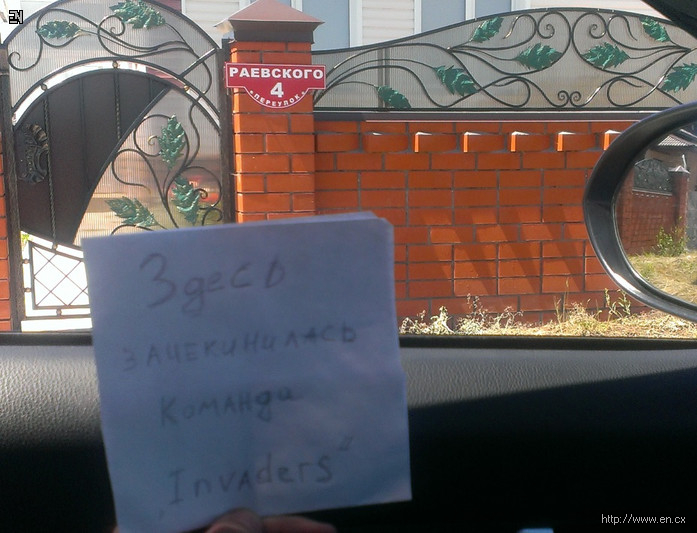 EN
РАЕВСКОГО
4
ПЕРЕУЛОК
Здесь
ЗАЧЕКИНИЛАСЬ
Команда
„Invaders“
http://www.en.cx